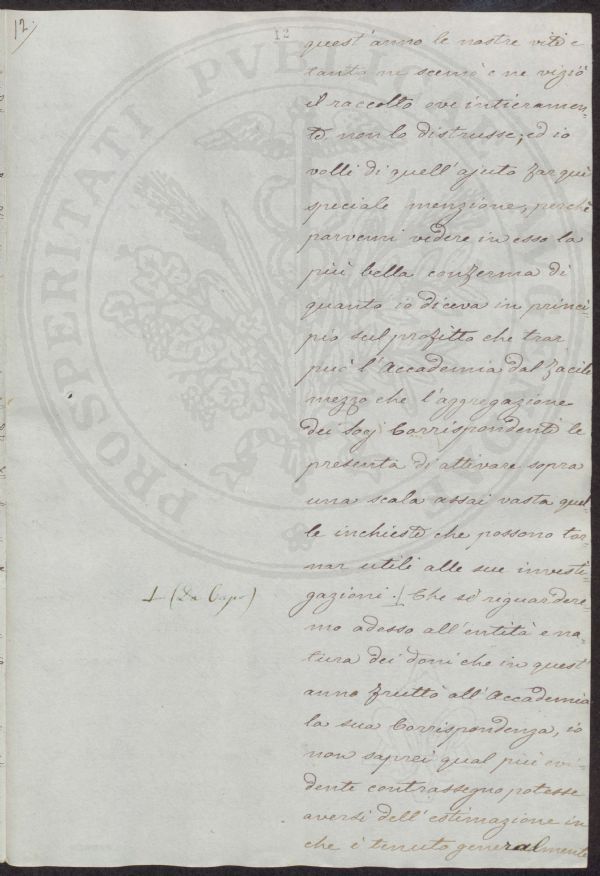 12.
12
quest'anno le nostre viti e
tanto ne scemò e ne viziò
il raccolto ove intieramen-
te non lo distrusse; ed io
volli di quell'ajuto far quì
speciale menzione, perchè
parvemi vedere in esso la
più bella conferma di
quanto io diceva in princi-
pio sul profitto che trar
può l'Accademia dal facile
mezzo che l'aggregazione
dei Socj Corrispondenti le
presenta di attivare sopra
una scala assai vasta quel
le inchieste che possono tor-
nar utili alle sue investi-
gazioni. Che se riguardere-
mo adesso all'entità e na-
tura dei doni che in quest'
anno fruttò all'Accademia
la sua Corrispondenza, io
non saprei qual più evi-
dente contrassegno potesse
aversi dell'estimazione in
che è tenuto generalmente
(Da Capo)
PROSPERITATI PVBLICAE